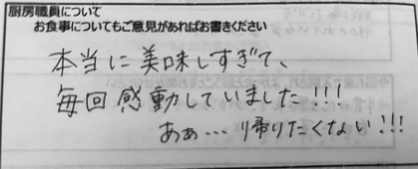 厨房職員について
お食事についてもご意見があればお書きください
本当に美味しすぎて、
毎回感動していました!!!
あぁ…帰りたくない!!!